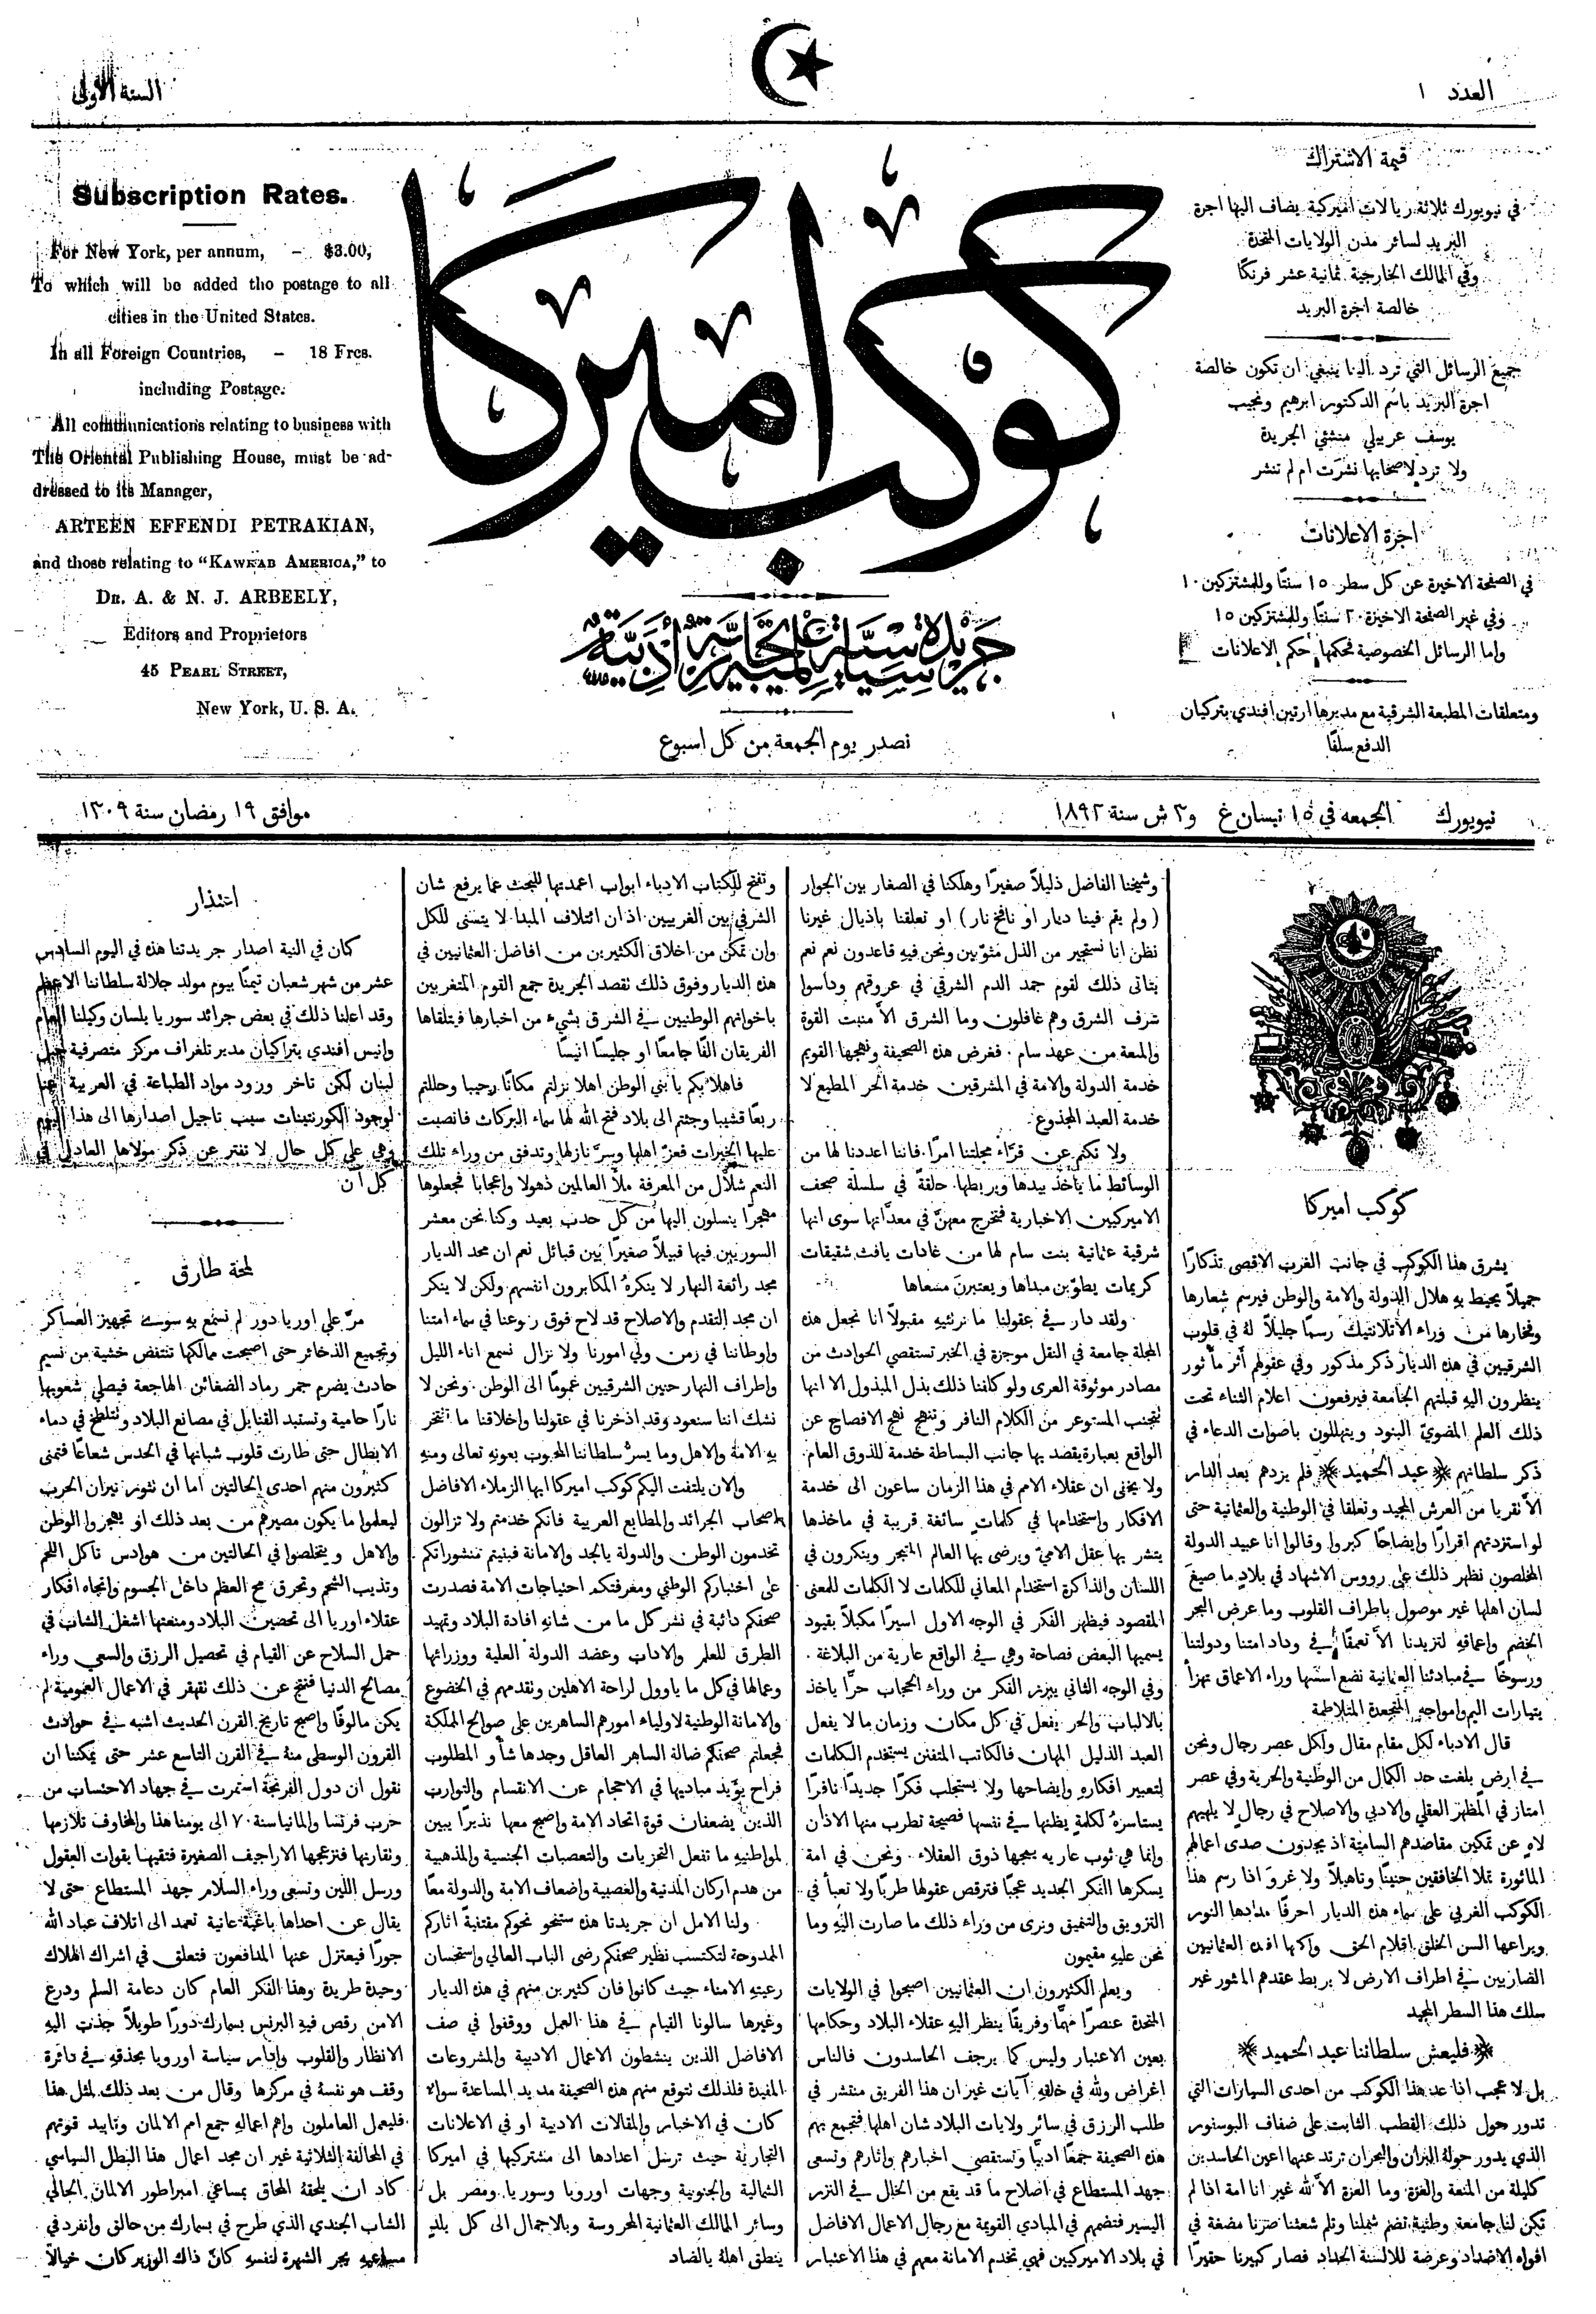 العدد ١
السنة الاولى
قيمة الاشتراك
في نيويورك ثلاثة ريالات اميركية يضاف اليها اجرة
البريد لسائر مدن الولايات المتحدة
وفي الممالك الخارجية ثمانية عشر فرنكًا
خالصة اجرة البريد
جميع الرسائل التي ترد الينا ينبغي ان تكون خالصة
اجرة البريد باسم الدكتور ابرهيم ونجيب
يوسف عربيلي منشئي الجريدة
ولا ترد لاصحابها نشرت ام لم تنشر
اجرة الاعلانات
في الصفحة الاخيرة عن كل سطر ١٥ سنتًا وللمشتركين ١٠
وفي غير الصفحة الاخيرة ٢٠ سنتًا وللمشتركين ١٥
واما الرسائل الخصوصية فحكمها حكم الاعلانات
ومتعلقات المطبعة الشرقية مع مديرها ارتين افندي بتركيان
الدفع سلفًا
كوكب اميركا
جريدة سياسية علمية تجارية أدبية
تصدر يوم الجمعة من كل اسبوع
Subscription Rates.
For New York, per annum, – $3.00,
To which will be added the postage to all
cities in the United States.
In all Foreign Countries, – 18 Frcs.
including Postage.
All communications relating to business with
The Oriental Publishing House, must be ad-
dressed to its Manager,
ARTEEN EFFENDI PETRAKIAN,
and those relating to “KAWKAB AMERICA,” to
DR. A. & N. J. ARBEELY,
Editors and Proprietors
45 PEARL STREET,
New York, U. S. A.
نيويورك الجمعه في ١٥ نيسان غ و٣ ش سنة ١٨٩٢
موافق ١٩ رمضان سنة ١٣٠٩
كوكب اميركا
يشرق هذا الكوكب في جانب الغرب الاقصى تذكارًا
جميلاً يحيط به هلال الدولة والامة والوطن فيرسم شعارها
وفخارها من وراء الأتلانتيك رسمًا جليلاً لهُ في قلوب
الشرقيين في هذه الديار ذكر مذكور وفي عقولهم أثر مأثور
ينظرون اليهِ قبلتهم الجامعة فيرفعون اعلام الثناء تحت
ذلك العلم المضويّ البنود ويبتهلون باصوات الدعاء في
ذكر سلطانهم ﴿عبد الحميد﴾ فلم يزدهم بعد الدار
الاَّ نقربا من العرش المجيد وتعلقا في الوطنية والعثمانية حتى
لو استزدتهم اقرارًا وايضاحًا كبروا وقالوا انا عبيد الدولة
المخلصون نظهر ذلك على رووس الاشهاد في بلادٍ ما صيغَ
لسان اهلها غير موصول باطراف القلوب وما عرض البحر
الخضم واعماقه لتزيدنا الاَّ تعمقًا في وداد امتنا ودولتنا
ورسوخًا في مبادئنا العثمانية نضع اسسها وراء الاعماق تهزأ
بتيارات اليم وامواجهِ المتجعدة المتلاطمة
قال الادباء لكل مقام مقال ولكل عصر رجال ونحن
في ارض بلغت حد الكمال من الوطنية والحرية وفي عصر
امتاز في المظهر العقلي والادبي والاصلاح في رجال لا يلهيهم
لاهٍ عن تمكين مقاصدهم السامية اذ يجدون صدى اعمالهم
الماثورة تملا الخافقين حنينًا وتاهيلاً ولا غروَ اذا رسم هذا
الكوكب الغربي على سماء هذه الديار احرفًا مدادها النور
ويراعها السن الخلق اقلام الحق واكبها افئدة العثمانيين
الضاربين في اطراف الارض لا يربط عقدهم المنثور غير
سلك هذا السطر المجيد
﴿فليعش سلطاننا عبد الحميد﴾
بل لا عجب اذا عد هذا الكوكب من احدى السيارات التي
تدور حول ذلك القطب الثابت على ضفاف البوسفور
الذي يدور حولهُ البران والبحران ترتد عنها اعين الحاسدين
كليلة من المنعة والعزة وما العزة الاَّ لله غير انا امة اذا لم
تكن لنا جامعة وطنية تضم شملنا وتلم شعثنا صرنا مضغة في
افواه الاضداد وعرضة للالسنة الحداد فصار كبيرنا حقيرًا
وشيخنا الفاضل ذليلاً صغيرًا وهلكنا في الصغار بين الجوار
( ولم يقم فينا ديار او نافخ نار ) او تعلقنا باذيال غيرنا
نظن انا نستجير من الذل مثوّبين ونحن فيهِ قاعدون نعم نعم
يتاتى ذلك لقوم جمد الدم الشرقي في عروقهم وداسوا
شرف الشرق وهم غافلون وما الشرق الاَّ منبت القوة
والمنعة من عهد سام . فغرض هذه الصحيفة ونهجها القويم
خدمة الدولة والامة في المشرقين خدمة الحر المطيع لا
خدمة العبد المجذوع.
ولا نكتم عن قرَّاء مجلتنا امرًا فاننا اعددنا لها من
الوسائط ما ياخذ بيدها ويربطها حلقة في سلسلة صحف
الاميركيين الاخبارية فتخرج معهنَّ في معداتها سوى انها
شرقية عثمانية بنت سام لها من غادات يافث شقيقات
كريمات يطوّبن مبداها ويعتبرنَ مسعاها
ولقد دار في عقولنا ما نرتئيهِ مقبولاً انا نجعل هذه
المجلة جامعة في النقل موجزة في الخبر تستقصي الحوادث من
مصادر موثوقة العرى ولو كلفنا ذلك بذل المبذول الا انها
تتجنب المستوعر من الكلام النافر وتنهج نهج الافصاح عن
الواقع بعبارة يقصد بها جانب البساطة خدمة للذوق العام.
ولا يخفى ان عقلاء الامم في هذا الزمان ساعون الى خدمة
الافكار واستخدامها في كلماتٍ سائغة قريبة في ماخذها
يتشر بها عقل الاميّ ويرضى بها العالم المتبحر ويبتكرون في
اللسان والذاكرة استخدام المعاني للكلمات لا الكلمات للمعنى
المقصود فيظهر الفكر في الوجه الاول اسيرًا مكبلاً بقيود
يسميها البعض فصاحة وهي في الواقع عارية من البلاغة .
وفي الوجه الثاني يبرز الفكر من وراء الحجاب حرًّا ياخذ
بالالباب والحر يفعل في كل مكان وزمان ما لا يفعل
العبد الذليل المهان فالكاتب المتفنن يستخدم الكلمات
لتعبير افكارهِ وايضاحها ولا يستجلب فكرًا جديدًا نافرًا
يستاسرهُ لكلمةٍ يظنها في نفسها فصيحة تطرب منها الاذان
وانما هي ثوب عاريه يمجها ذوق العقلاء . ونحن في امة
يسكرها الفكر الجديد عجبًا فترقص عقولها طربًا ولا تعبأ في
التزويق والتنميق ونرى من وراء ذلك ما صارت اليهِ وما
نحن عليهِ مقيمون
ويعلم الكثيرون ان العثمانيين اصبحوا في الولايات
المتحدة عنصرًا مهمًّا وفريقًا ينظر اليهِ عقلاء البلاد وحكامها
بعين الاعتبار وليس كما يرجف الحاسدون فالناس
اغراض ولله في خلقهِ آيات غير ان هذا الفريق منتشر في
طلب الرزق في سائر ولايات البلاد شان اهلها فتجمع بهم
هذه الصحيفة جمعًا ادبيًّا وتستقصي اخبارهم واثارهم وتسعى
جهد المستطاع في اصلاح ما قد يقع من الخلل في النزر
اليسير فتضمهم في المبادي القويمة مع رجال الاعمال الافاضل
في بلاد الاميركيين فهي تخدم الامانة معهم في هذا الاعتبار
وتفتح للكتاب الادباء ابواب اعمدتها للبحث عما يرفع شان
الشرقي بين الغربيين اذ ان ائتلاف المبدا لا يتسنى للكل
وان تمكن من اخلاق الكثيرين من افاضل العثمانيين في
هذه الديار وفوق ذلك نقصد الجريدة جمع القوم المتغربين
باخوانهم الوطنيين في الشرق بشيء من اخبارها فيتلقاها
الفريقان الفًا جامعًا او جليسًا انيسًا
فاهلا بكم يا بني الوطن اهلا نزلتم مكانًا رحيبا وحللتم
ربعًا قشيبا وجئتم الى بلاد فتح الله لها سماء البركات فانصبت
عليها الخيرات فعزّ اهلها وسرَّ نازلها وتدفق من وراء تلك
النعم شلاَّل من المعرفة ملأَ العالمين ذهولا واعجابا فجعلوها
مهجرًا ينسلون اليها من كل حدب بعيد وكنا نحن معشر
السوريين فيها قبيلاً صغيرًا بين قبائل نعم ان مجد الديار
مجد رائعة النهار لا ينكرهُ المكابرون انفسهم ولكن لا ينكر
ان مجد التقدم والاصلاح قد لاح فوق ربوعنا في سماء امتنا
واوطاننا في زمن ولي امورنا ولا نزال نسمع اناء الليل
واطراف النهار حنين الشرقيين عمومًا الى الوطن . ونحن لا
نشك اننا سنعود وقد اذخرنا في عقولنا واخلاقنا ما تفتخر
بهِ الامة والاهل وما يسرُّ سلطاننا المحبوب بعونهِ تعالى ومنهِ
والان يلتفت اليكم كوكب اميركا ايها الزملاء الافاضل
اصحاب الجرائد والمطابع العربية فانكم خدمتم ولا تزالون
تخدمون الوطن والدولة بالجد والامانة فبنيتم منشوراتكم
على اختباركم الوطني ومعرفتكم احتياجات الامة فصدرت
صحفكم دائبة في نشر كل ما من شانهِ افادة البلاد وتمهيد
الطرق للعلم والاداب وعضد الدولة العلية ووزرائها
وعمالها في كل ما ياوول لراحة الاهلين ونقدمهم في الخضوع
والامانة الوطنية لاولياء امورهم الساهرين على صوالح المملكة
فجعلتم صحفكم ضالة الساهر العاقل وجدها شأو المطلوب
فراح يؤيد مباديها في الاحجام عن الانقسام والتوارب
الذين يضعفان قوة اتحاد الامة واصبح معها نذيرًا يبين
لمواطنيهِ ما تفعل التحزبات والتعصبات الجنسية والمذهبية
من هدم اركان المدنية والعصبية واضعاف الامة والدولة معًا
ولنا الامل ان جريدتنا هذه ستنحو نحوكم مقتفيةً اثاركم
الممدوحة لتكتسب نظير صحفكم رضى الباب العالي واستحسان
رعيتهِ الامناء حيث كانوا فان كثيرين منهم في هذه الديار
وغيرها سالونا القيام في هذا العمل ووقفوا في صف
الافاضل الذين ينشطون الاعمال الادبية والمشروعات
المفيدة فلذلك نتوقع منهم هذه الصحيفة مد يد المساعدة سواء
كان في الاخبار والمقالات الادبية او في الاعلانات
التجارية حيث ترسل اعدادها الى مشتركيها في اميركا
الشمالية والجنوبية وجهات اوروبا وسوريا ومصر بل
وسائر الممالك العثمانية المحروسة وبالاجمال الى كل بلدٍ
ينطق اهلهُ بالضاد
اعتذار
كان في النية اصدار جريدتنا هذه في اليوم السادس
عشر من شهر شعبان تيمنًا بيوم مولد جلالة سلطاننا الاعظم
وقد اعلنا ذلك في بعض جرائد سوريا بلسان وكيلنا العام
وانيس افندي يتراكيان مدير تلغراف مركز متصرفية جبل
لبنان لكن تاخر ورود مواد الطباعة في العربية عنا
لوجود الكورنتينات سبب تاجيل اصدارها الى هذا اليوم
وهي على كل حال لا تفتر عن ذكر مولاها العادل في
كل آن
لمحة طارق
مرَّ على اوربا دور لم نسمع بهِ سوى تجهيز العساكر
وتجميع الذخائر حتى اصبحت ممالكها تنتفض خشية من نسيم
حادث يضرم جمر رماد الضغائن الهاجعة فيصلي شعوبها
نارًا حامية وتستبد القنابل في مصانع البلاد وتتلطخ في دماء
الابطال حتى طارت قلوب شبانها في الحدس شعاعًا فتمنى
كثيرون منهم احدى الحالتين اما ان نثور نيران الحرب
ليعلموا ما يكون مصيرهم من بعد ذلك او يهجروا الوطن
والاهل ويتخلصوا في الحالتين من هواجس تأكل اللحم
وتذيب الشحم وتحرق مح العظم داخل الجسوم واتجاه افكار
عقلاء اوربا الى تحصين البلاد ومنعتها اشغل الشاب في
حمل السلاح عن القيام في تحصيل الرزق والسعي وراء
مصالح الدنيا فنتج عن ذلك نقهقر في الاعمال العمومية لم
يكن مالوفًا واصبح تاريخ القرن الحديث اشبه في حوادث
القرون الوسطى منهُ في القرن التاسع عشر حتى يمكننا ان
نقول ان دول الفرنجة استمرت في جهاد الاحتساب من
حرب فرنسا والمانيا سنة ٧٠ الى يومنا هذا والمخاوف تلازمها
ونقاربها فتزعجها الاراجيف الصغيرة فتقيها بقوات العقول
ورسل اللين وتسعى وراء السلام جهد المستطاع حتى لا
يقال عن احداها باغية عاتية تعمد الى اتلاف عباد الله
جورًا فيعتزل عنها المدافعون فتعلق في اشراك الهلاك
وحيدة طريدة وهذا الفكر العام كان دعامة السلم ودرع
الامن رقص فيهِ البرنس بسمارك دورًا طويلاً جذب اليهِ
الانظار والقلوب وادار سياسة اوروبا بحذقهِ في دائرة
وقف هو نفسهُ في مركزها وقال من بعد ذلك لمثل هذا
فليعمل العاملون واهم اعمالهِ جمع امم الالمان وتاييد قوتهم
في المحالفة الثلاثية غير ان مجد اعمال هذا البطل السياسي
كاد ان يلحقهُ المحاق بمساعي امبراطور الالمان الحالي
الشاب الجندي الذي طرح في بسمارك من حالق وانفرد في
مساعيهِ يجر الشهرة لنفسهِ كان ذاك الوزير كان خيالاً